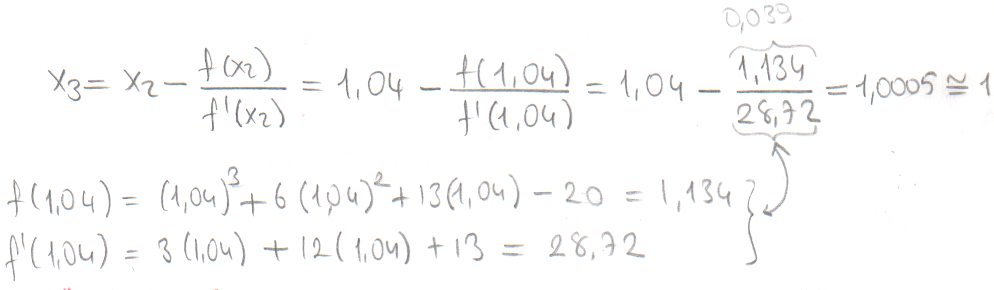 0,039
x₃ = x₂ − f(x₂)/f'(x₂) = 1,04 − f(1,04)/f'(1,04) = 1,04 − 1,134/28,72 = 1,0005 ≅ 1
f(1,04) = (1,04)³ + 6(1,04)² + 13(1,04) − 20 = 1,134
f'(1,04) = 3(1,04) + 12(1,04) + 13 = 28,72